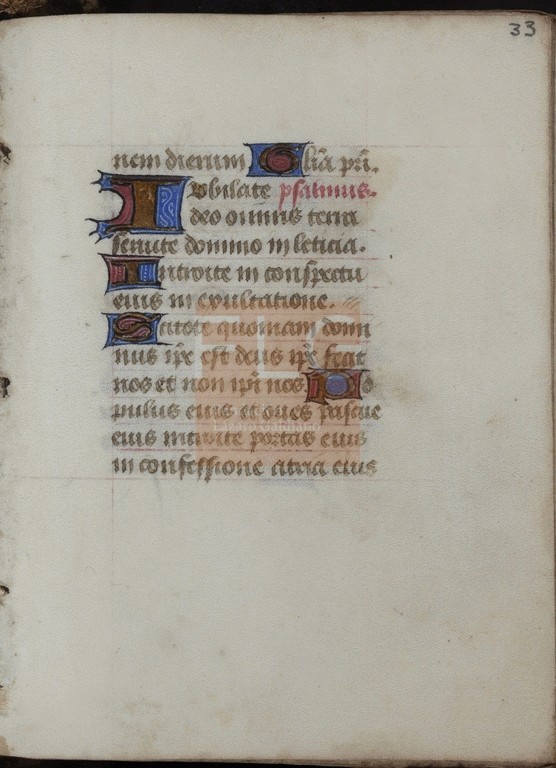 33
nem dierum Glia pri.
Iubilate psalmus.
deo omnis terra
seruite domino in leticia.
Introite in conspectu
eius in exultatione.
Scitote quoniam domi
nus ipe est deus ipe fecit
nos et non ipi nos. Po
pulus eius et oues pascue
eius introite portas eius
in confessione atria eius
FLG
Lázaro Galdiano